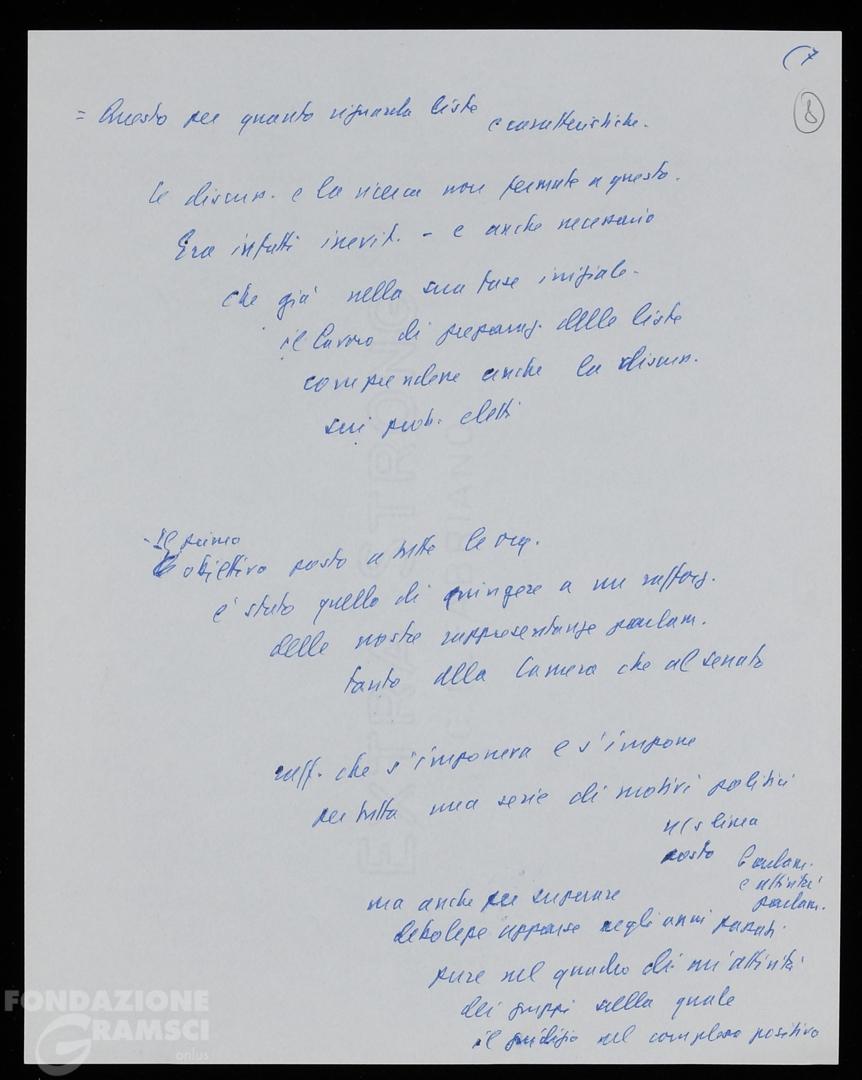 (7
8
= Questo per quanto riguarda liste
e caratteristiche.
La discuss. e la ricerca non fermate a questo.
Era infatti inevit. - e anche necessario
che già nella sua fase iniziale -
il lavoro di preparaz. delle liste
comprendere anche la discuss.
sui prob. eletti
- Il primo
obiettivo posto a tutte le org.
è stato quello di spingere a un rafforz.
delle nostre rappresentanze parlam.
tanto alla Camera che al Senato
raff. che s'imponeva e s'impone
per tutta una serie di motivi politici
ns linea
posto Parlam.
e attività
parlam.
ma anche per superare
debolezze apparse negli anni passati
pure nel quadro di un'attività
dei gruppi sulla quale
il giudizio nel complesso positivo
EXTRA STRONG
FABRIANO
FONDAZIONE
GRAMSCI
onlus